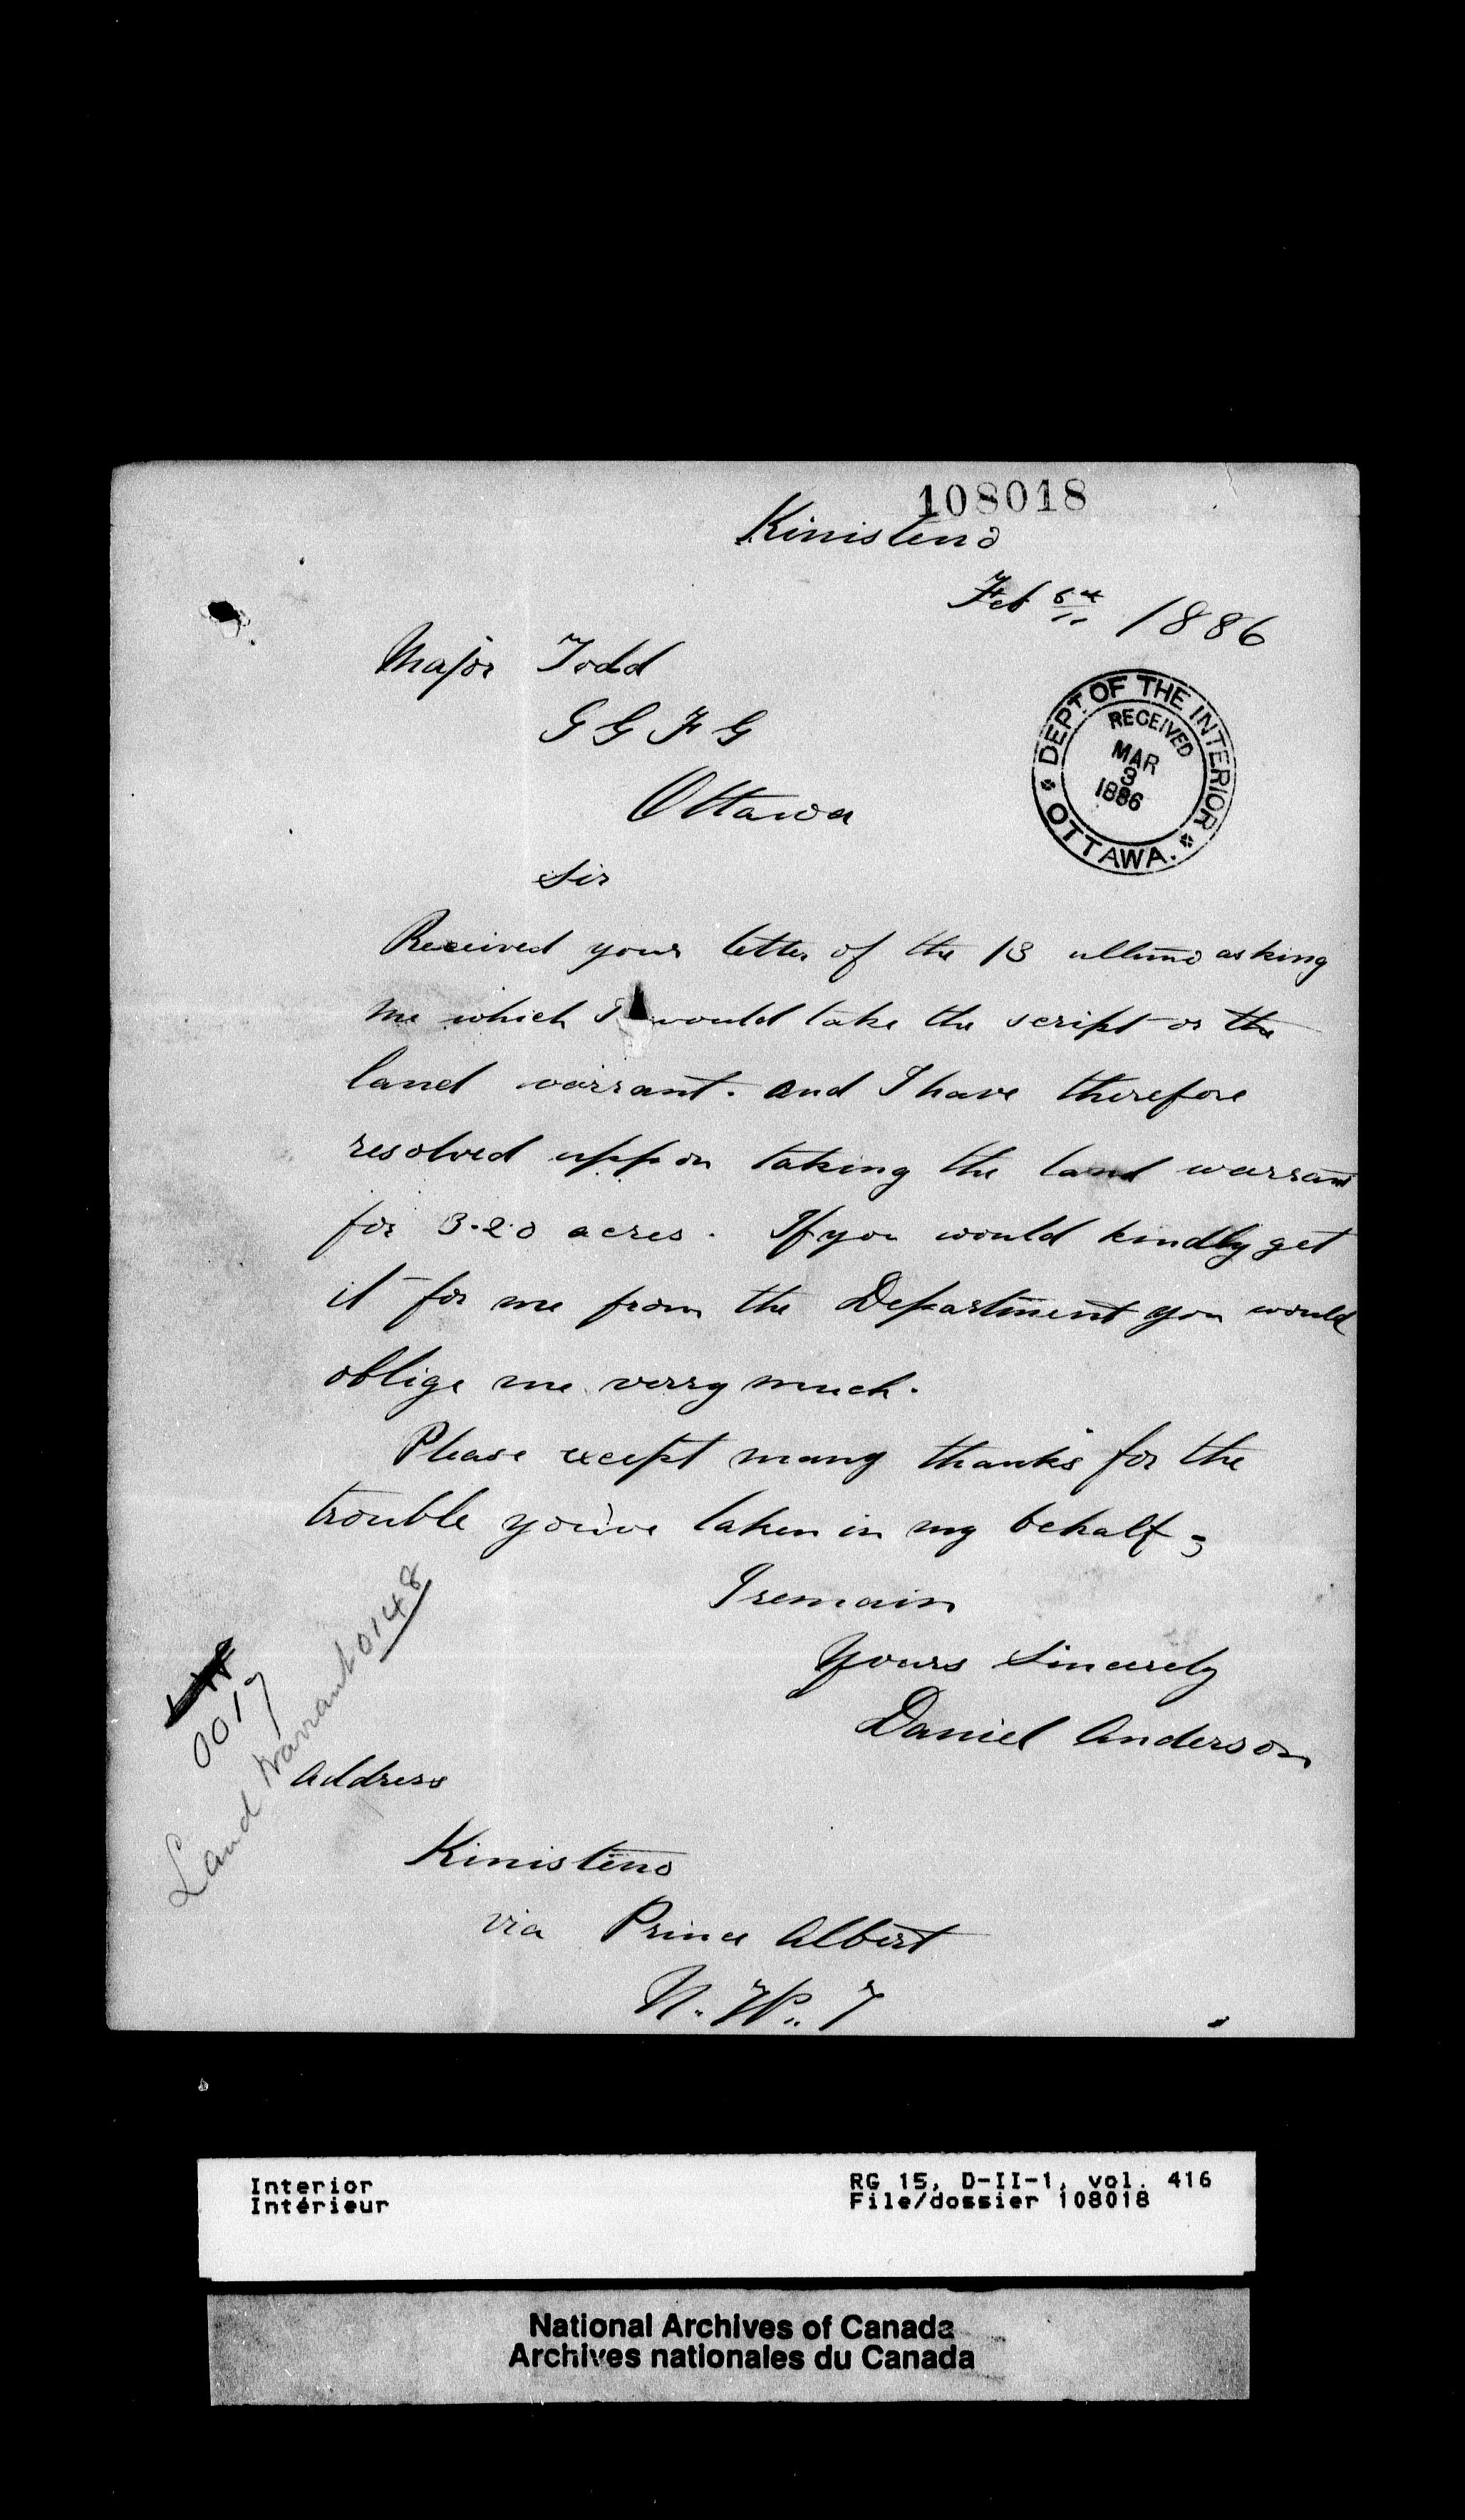 108018
Kinisteno
Feb 6th 1886
Major Todd
G G F G
Ottawa
DEPT. OF THE INTERIOR
RECEIVED
MAR
3
1886
OTTAWA.
Sir
Received your letter of the 13 ultimo asking
me which I would take the script or the
land warrant. and I have therefore
resolved uppon taking the land warrant
for 3.20 acres. If you would kindly get
it for me from the Department you would
oblige me verry much.
Please except many thanks for the
trouble you've taken in my behalf,
I remain
Yours Sincerely
Daniel Anderson
0017
Land Warrant 0148
Address
Kinisteno
via Prince Albert
N. W. T
Interior
Intérieur
RG 15, D-II-1, vol. 416
File/dossier 108018
National Archives of Canada
Archives nationales du Canada